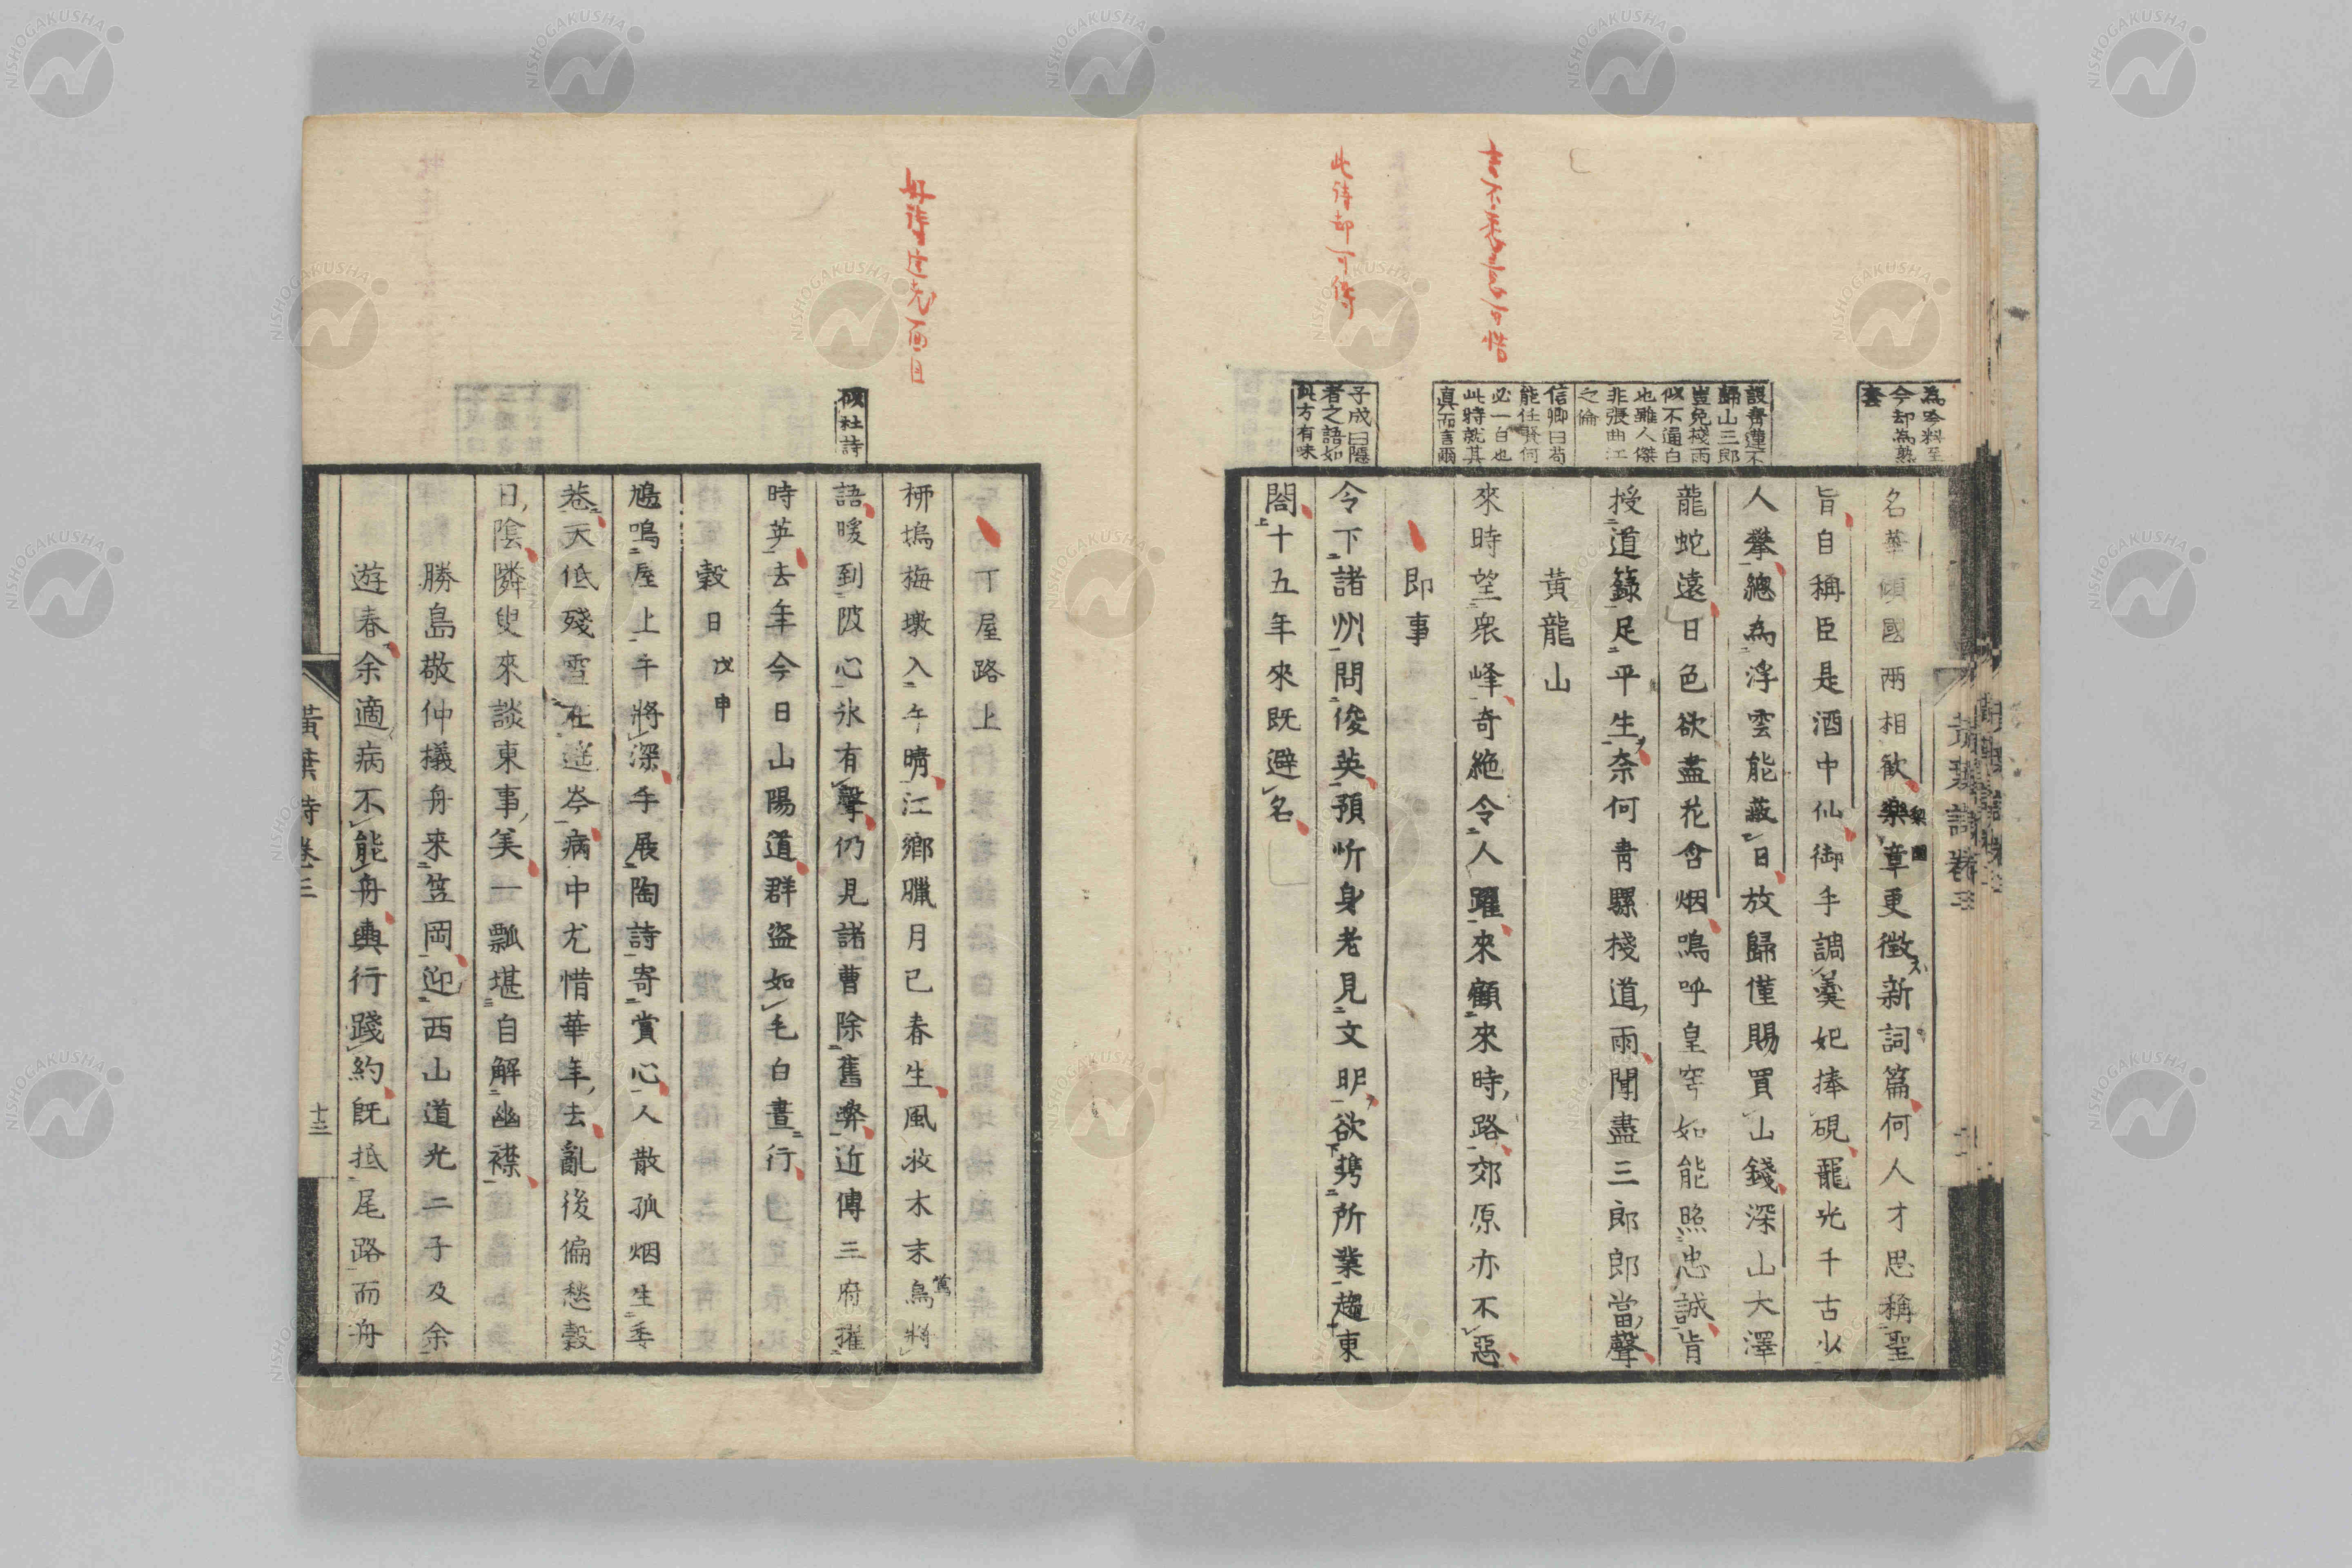 為吟料至
今却為熟
套
設青蓮不
歸山三郎
豈免棧雨
似不逼白
也雖人傑
非張曲江
之倫
信卿曰苟
能任賢何
必一白也
此時就其
真而言爾
子成曰隱
者之語如
此方有味
此詩却可傳
名華傾國兩相歓樂章更徴新詞篇何人才思稱聖
梨園
旨自稱臣是酒中仙御手調羹妃捧硯寵光千古少
人攀總為浮雲能蔽日放歸僅賜買山錢深山大澤
龍蛇遠日色欲盡花含烟鳴呼皇穹如能照忠誠肯
授道籙足平生奈何青騾棧道雨聞盡三郎郎當聲
黃龍山
來時望衆峰奇絶令人躍來顧來時路郊原亦不惡
即事
令下諸州問俊英預忻身老見文明欲携所業趨東
閤十五年來既避名
黃葉詩卷三
好詩
面目
似杜詩
丁屋路上
柳塢梅墩入午晴江鄉臘月已春生風收木末鳥將
鶯
語暖到陂心氷有聲仍見諸曹除舊弊近傳三府擢
時英去年今日山陽道群盜如毛白晝行
穀日 戊申
鳩鳴屋上午將深手展陶詩寄賞心人散孤烟生季
巷天低殘雪在遥岑病中尤惜華年去亂後偏愁穀
日陰隣叟來談東事美一瓢堪自解幽襟
勝島敬仲擬舟来笠岡迎西山道光二子及余
遊春余適病不能舟輿行踐約既抵尾路而舟
黃葉詩卷三
十三
NISHOGAKUSHA